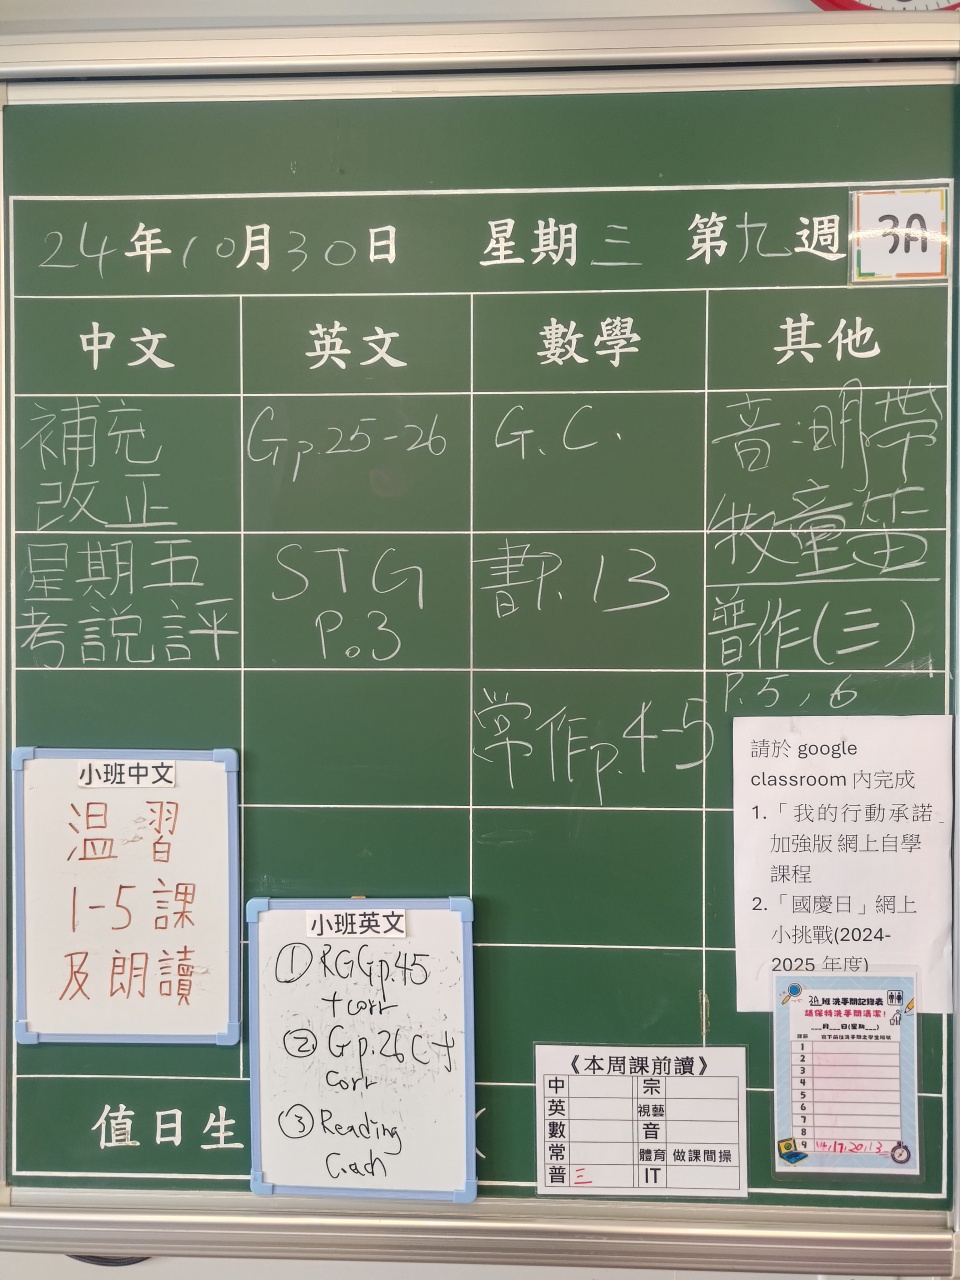 24年10月30日 星期三 第九週 3A
中文 英文 數學 其他
補充
改正
Gp.25-26
G.C.
音:明帶
牧童笛
星期五
考説評
STG
P.3
書P.13
普作(三)
P.5,6
常作p.4-5
請於 google
classroom 內完成
1.「我的行動承諾
加強版 網上自學
課程
2.「國慶日」網上
小挑戰(2024-
2025 年度)
小班中文
温習
1-5課
及朗讀
小班英文
① RGGp.45
+corr
② Gp.26C+
corr
③ Reading
Coach
3A班洗手間記錄表
請保持洗手間清潔!
___月___日(星期___)
1
2
3
4
5
6
7
8
9
《本周課前讀》
中 宗
英 視藝
數 音
常 體育 做課間操
普 三 IT
值日生